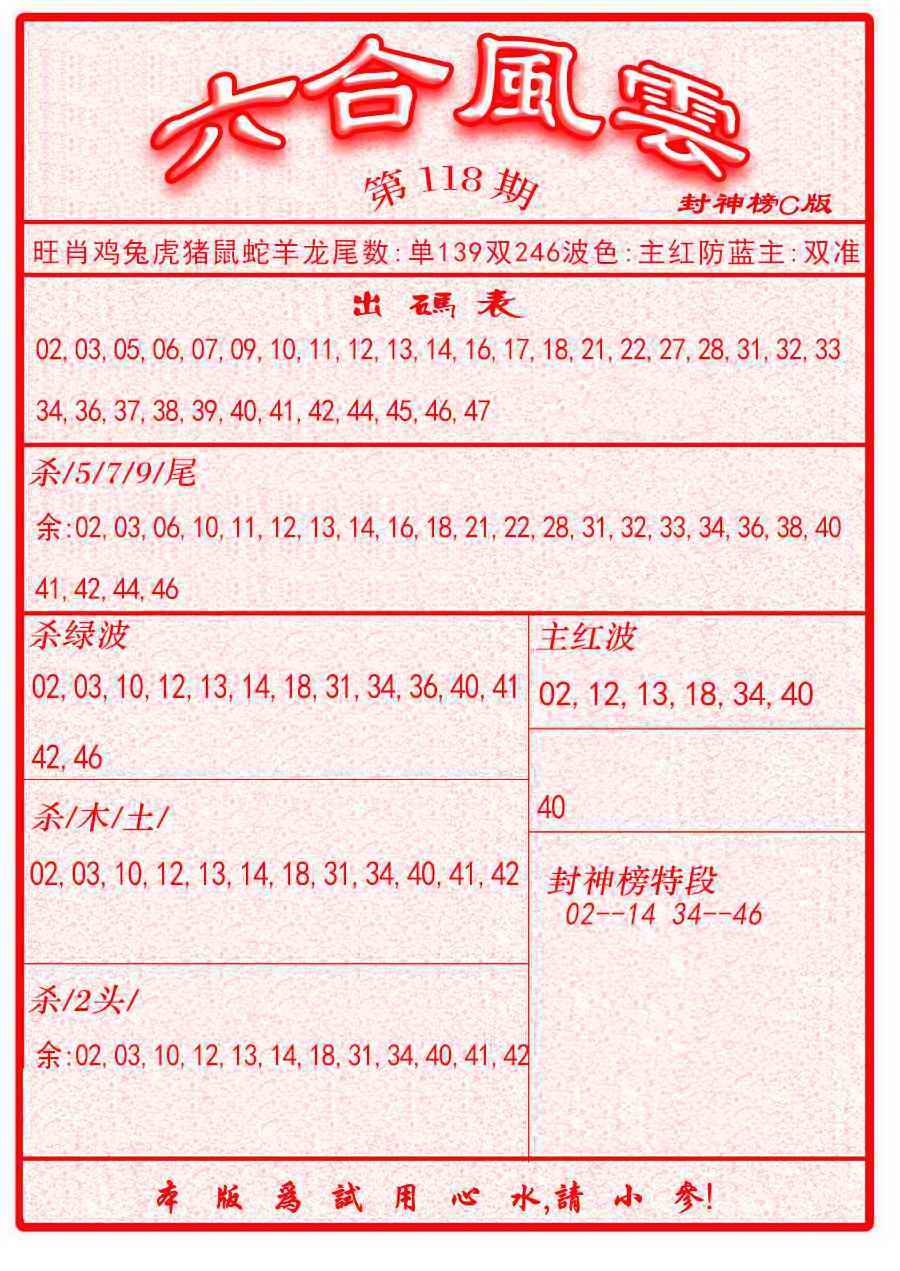 六合風雲
第118期
封神榜C版
旺肖鸡兔虎猪鼠蛇羊龙尾数:单139双246波色:主红防蓝主:双准
出碼表
02,03,05,06,07,09,10,11,12,13,14,16,17,18,21,22,27,28,31,32,33
34,36,37,38,39,40,41,42,44,45,46,47
杀/5/7/9/尾
余:02,03,06,10,11,12,13,14,16,18,21,22,28,31,32,33,34,36,38,40
41,42,44,46
杀绿波
02,03,10,12,13,14,18,31,34,36,40,41
42,46
杀/木/土/
02,03,10,12,13,14,18,31,34,40,41,42
杀/2头/
余:02,03,10,12,13,14,18,31,34,40,41,42
主红波
02,12,13,18,34,40
40
封神榜特段
02--14 34--46
本版爲試用心水,請小參!